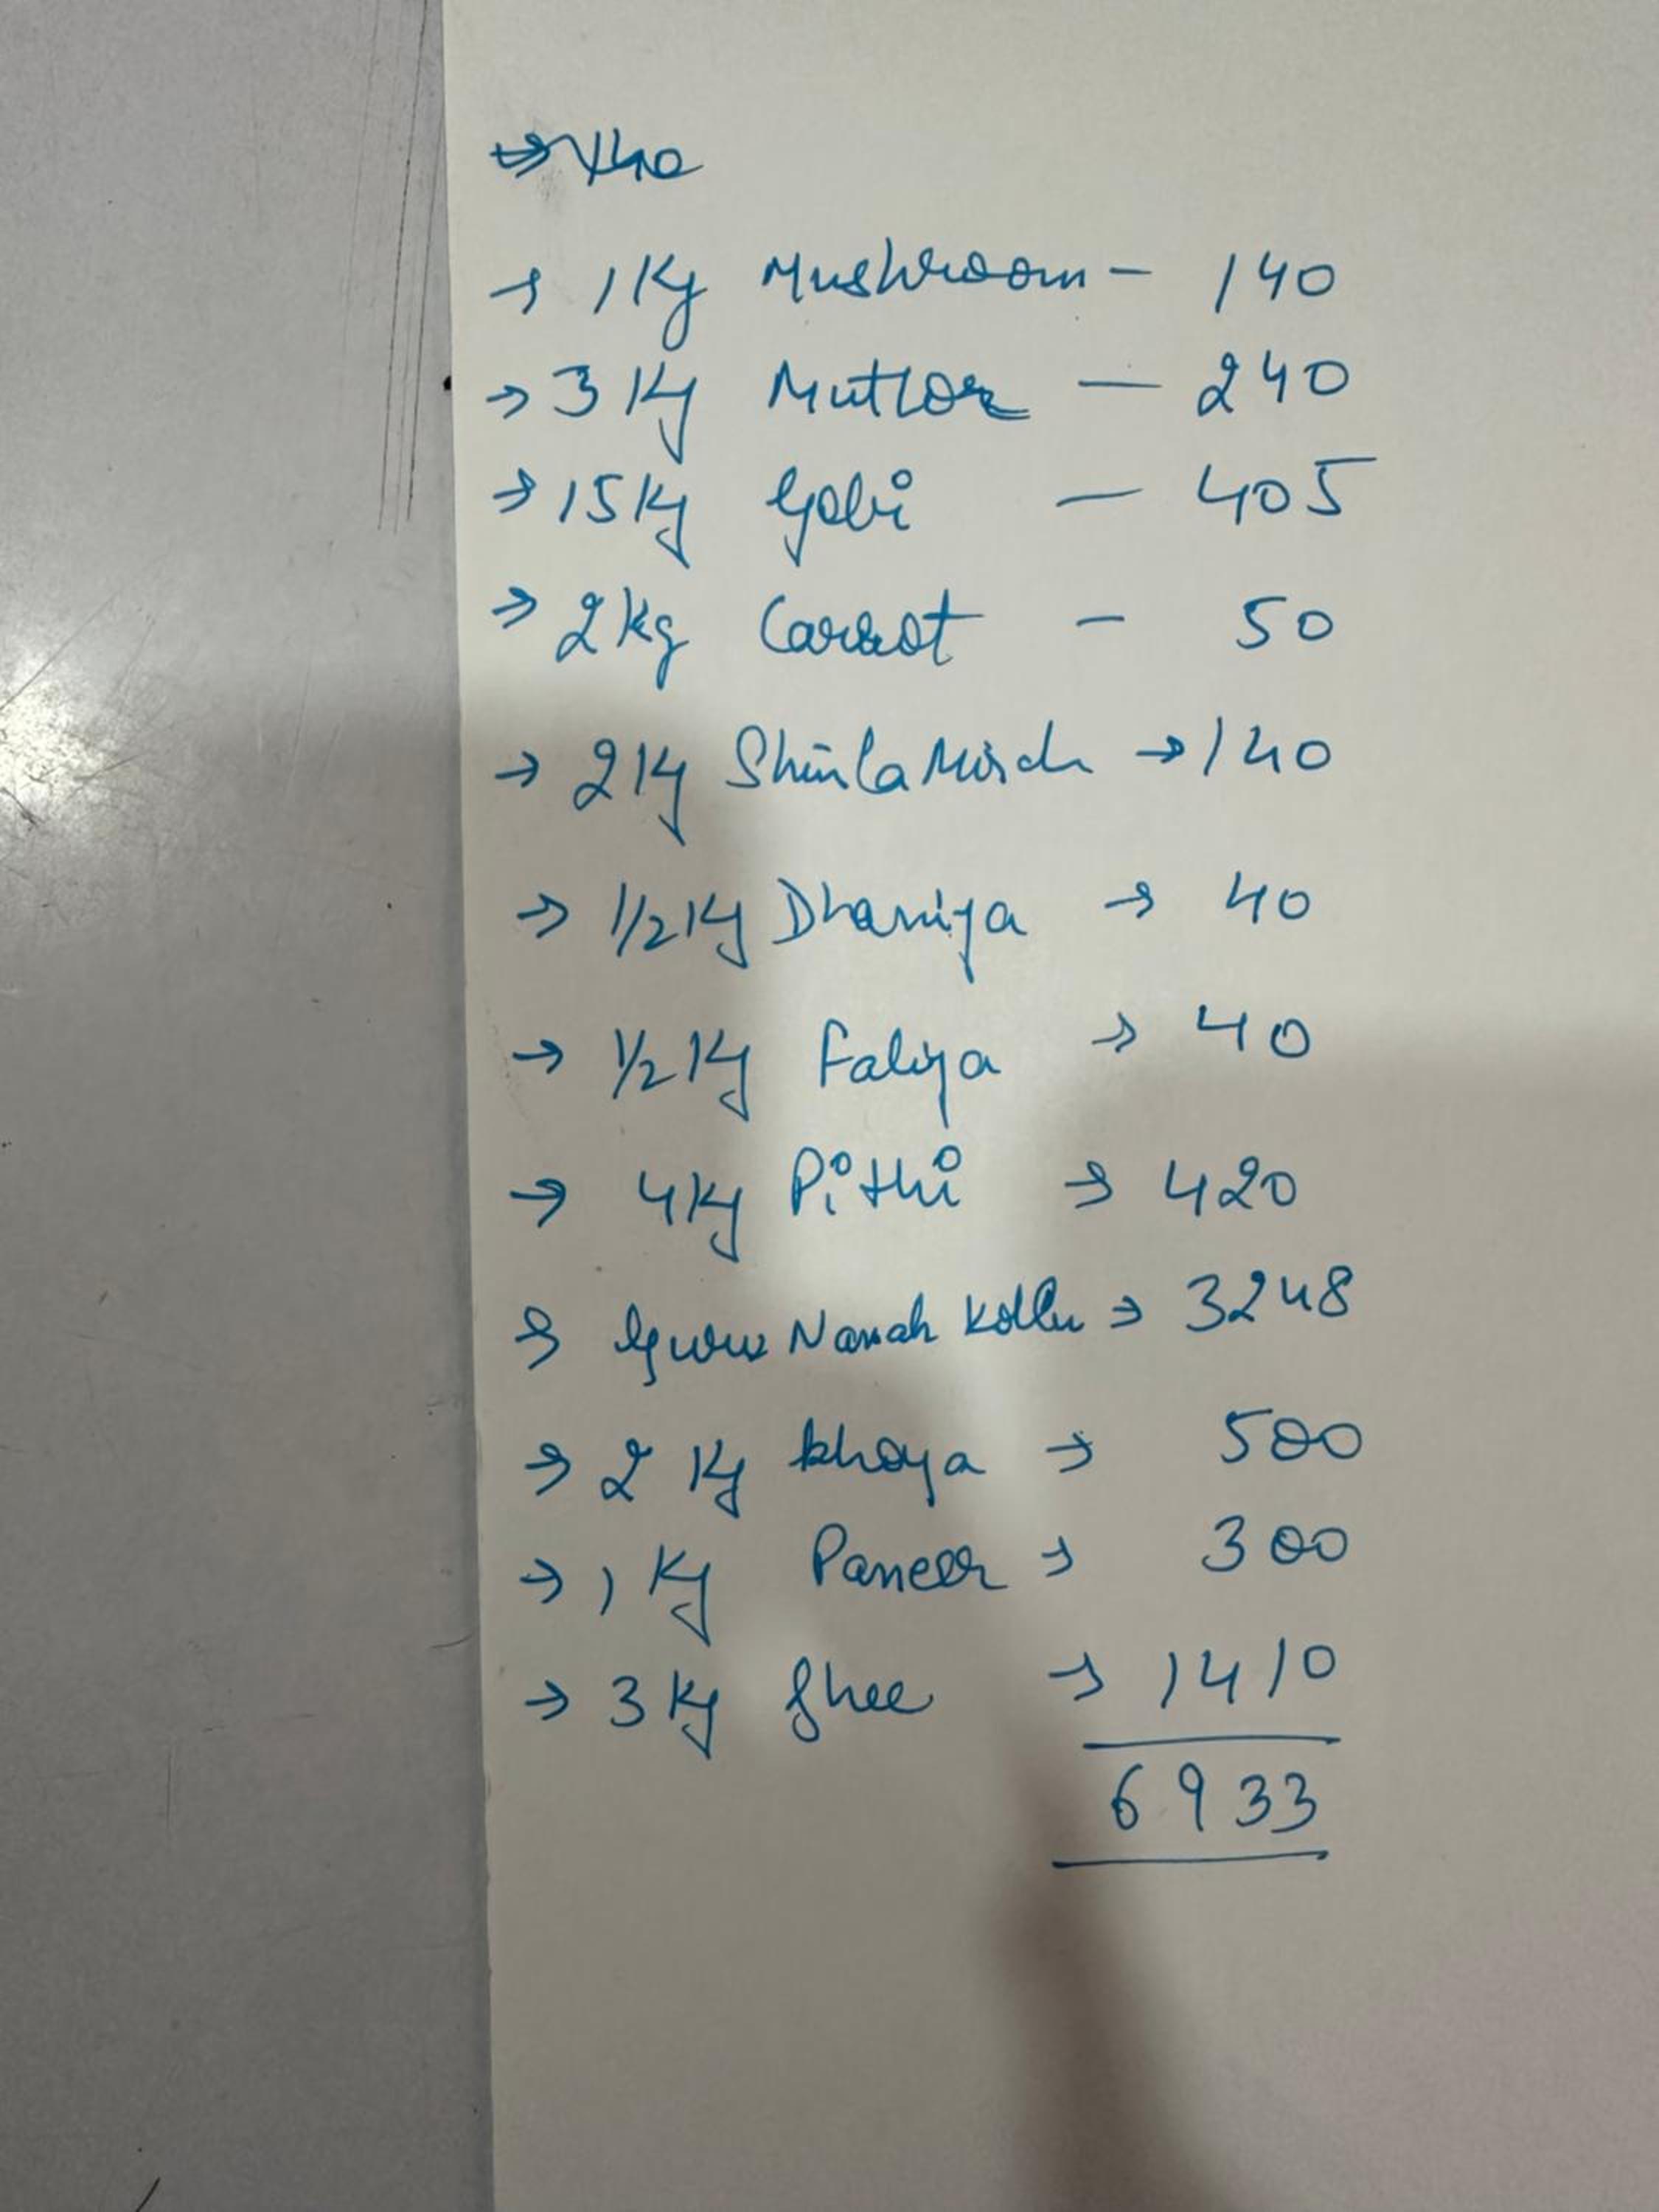 → 1Kg Mushroom - 140
→ 3 Kg Mutter — 240
→ 15Kg Gobi — 405
→ 2kg Carrot - 50
→ 2Kg Shimla Mirch → 140
→ 1/2 Kg Dhaniya → 40
→ 1/2 Kg Faliya → 40
→ 4Kg Pithi → 420
→ Guru Nanak → 3248
→ 2 Kg khoya → 500
→ 1 Kg Paneer → 300
→ 3 Kg Ghee → 1410
6933